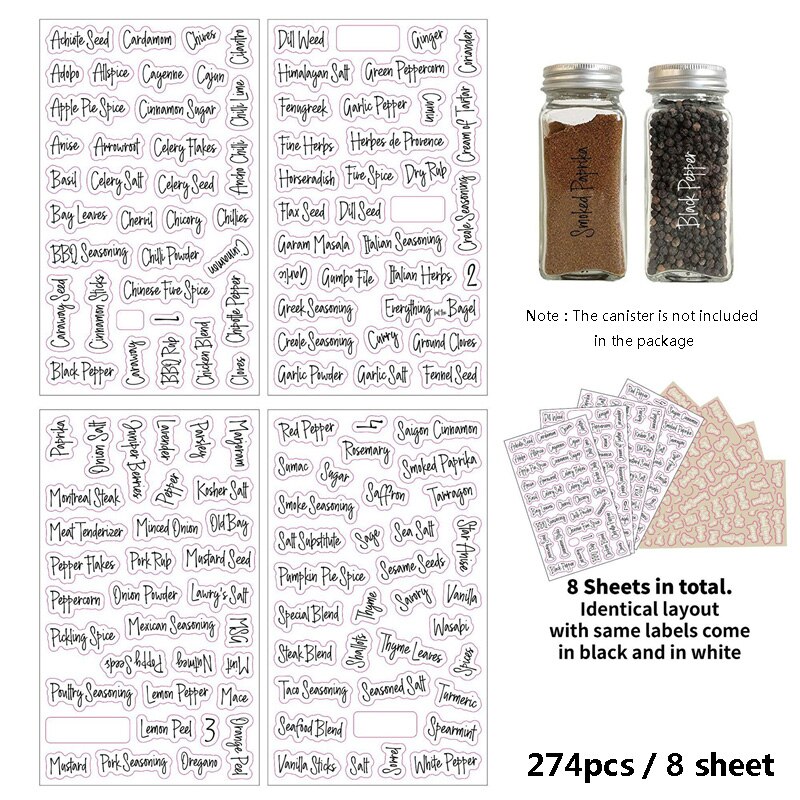 Achiote Seed Cardamom Chives Cilantro
Adobo Allspice Cayenne Cajun
Chili Lime
Apple Pie Spice Cinnamon Sugar
Anise Arrowroot Celery Flakes
Ancho Chili
Basil Celery Salt Celery Seed
Bay Leaves Chervil Chicory Chilies
BBQ Seasoning Chili Powder Cinnamon
Caraway Seed Cinnamon Sticks Chinese Five Spice
Chipotle Pepper
1
Black Pepper Caraway BBQ Rub Chicken Blend Cloves
Dill Weed Ginger Coriander
Himalayan Salt Green Peppercorn
Fenugreek Garlic Pepper Cumin Cream of Tartar
Fine Herbs Herbes de Provence
Horseradish Five Spice Dry Rub
Creole Seasoning
Flax Seed Dill Seed
Garam Masala Italian Seasoning
Garlic Gumbo File Italian Herbs 2
Greek Seasoning Everything but the Bagel
Creole Seasoning Curry Ground Cloves
Garlic Powder Garlic Salt Fennel Seed
Paprika Onion Salt Juniper Berries Lavender Parsley Marjoram
Montreal Steak Pepper Kosher Salt
Meat Tenderizer Minced Onion Old Bay
Pepper Flakes Pork Rub Mustard Seed
Peppercorn Onion Powder Lawry's Salt
Pickling Spice Mexican Seasoning MSG
Poppy Seeds Nutmeg Mint
Poultry Seasoning Lemon Pepper Mace
Lemon Peel 3 Orange Peel
Mustard Pork Seasoning Oregano
Red Pepper 4 Saigon Cinnamon
Rosemary
Sumac Sugar Smoked Paprika
Smoke Seasoning Saffron Tarragon
Salt Substitute Sage Sea Salt Star Anise
Pumpkin Pie Spice Sesame Seeds
Special Blend Thyme Savory Vanilla
Wasabi
Steak Blend Shallots Thyme Leaves Spices
Taco Seasoning Seasoned Salt Turmeric
Seafood Blend Spearmint
Vanilla Sticks Salt Sorrel White Pepper
Smoked Paprika
Black Pepper
Note : The canister is not included
in the package
8 Sheets in total.
Identical layout
with same labels come
in black and in white
274pcs / 8 sheet